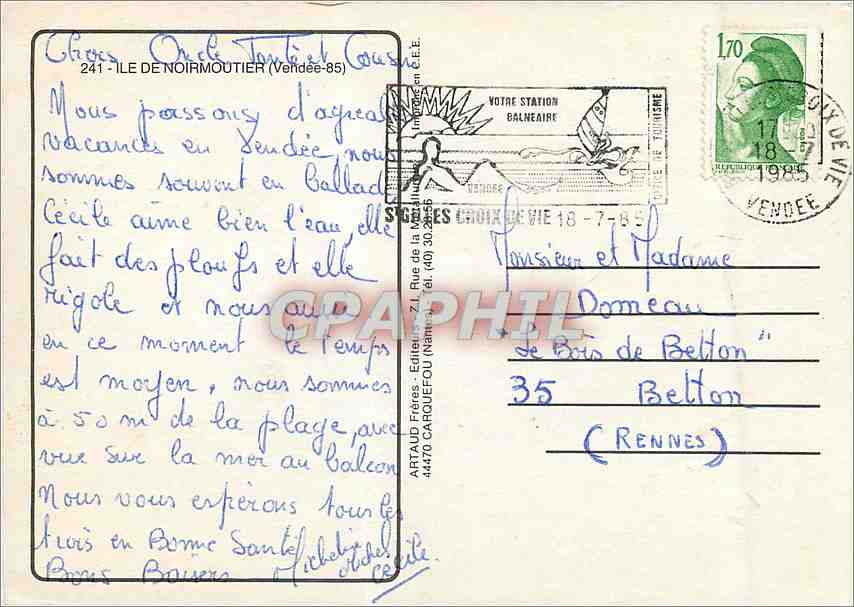 Chers Oncle Tante et Cousin
241 - ILE DE NOIRMOUTIER (Vendée-85)
Nous passons d'agréab
vacances en Vendée, nous
sommes souvent en ballad
Cécile aime bien l'eau, elle
fait des ploufs et elle
rigole et nous aussi
en ce moment le temps
est moyen, nous sommes
à 50 m de la plage, avec
vue sur la mer au balcon
Nous vous espérons tous les
trois en Bonne Santé
Bons Baisers Micheline
Cécile
ARTAUD Frères - Editeurs - Z.I. Rue de la Métallurgie
44470 CARQUEFOU (Nantes) Tél. (40) 30.28.56
Imprimé en C.E.E.
VOTRE STATION
BALNEAIRE
VENDEE
OFFICE DE TOURISME
ST GILLES CROIX DE VIE 18-7-85
1,70
REPUBLIQUE FRANÇAISE
CROIX DE VIE
18 - 7
1985
VENDEE
Monsieur et Madame
Domeau
"Le Bois de Betton"
35 Betton
(RENNES)
CPAPHIL